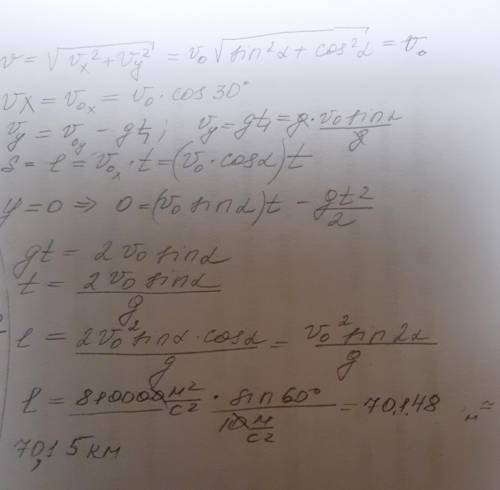 v = √(vx² + vy²) = v₀ √(sin²α + cos²α) = v₀
vx = v₀x = v₀ · cos 30°
vy = v₀y − gt₁; vy = gt₁ = g · v₀ sinα / g
S = l = v₀x · t = (v₀ · cosα) t
y = 0 ⇒ 0 = (v₀ sinα) t − gt²/2
gt = 2 v₀ sinα
t = 2 v₀ sinα / g
l = 2v₀² sinα · cosα / g = v₀² sin2α / g
l = 810000 м²/с² · sin 60° / 10 м/с² = 70148 м ≈
70,15 км